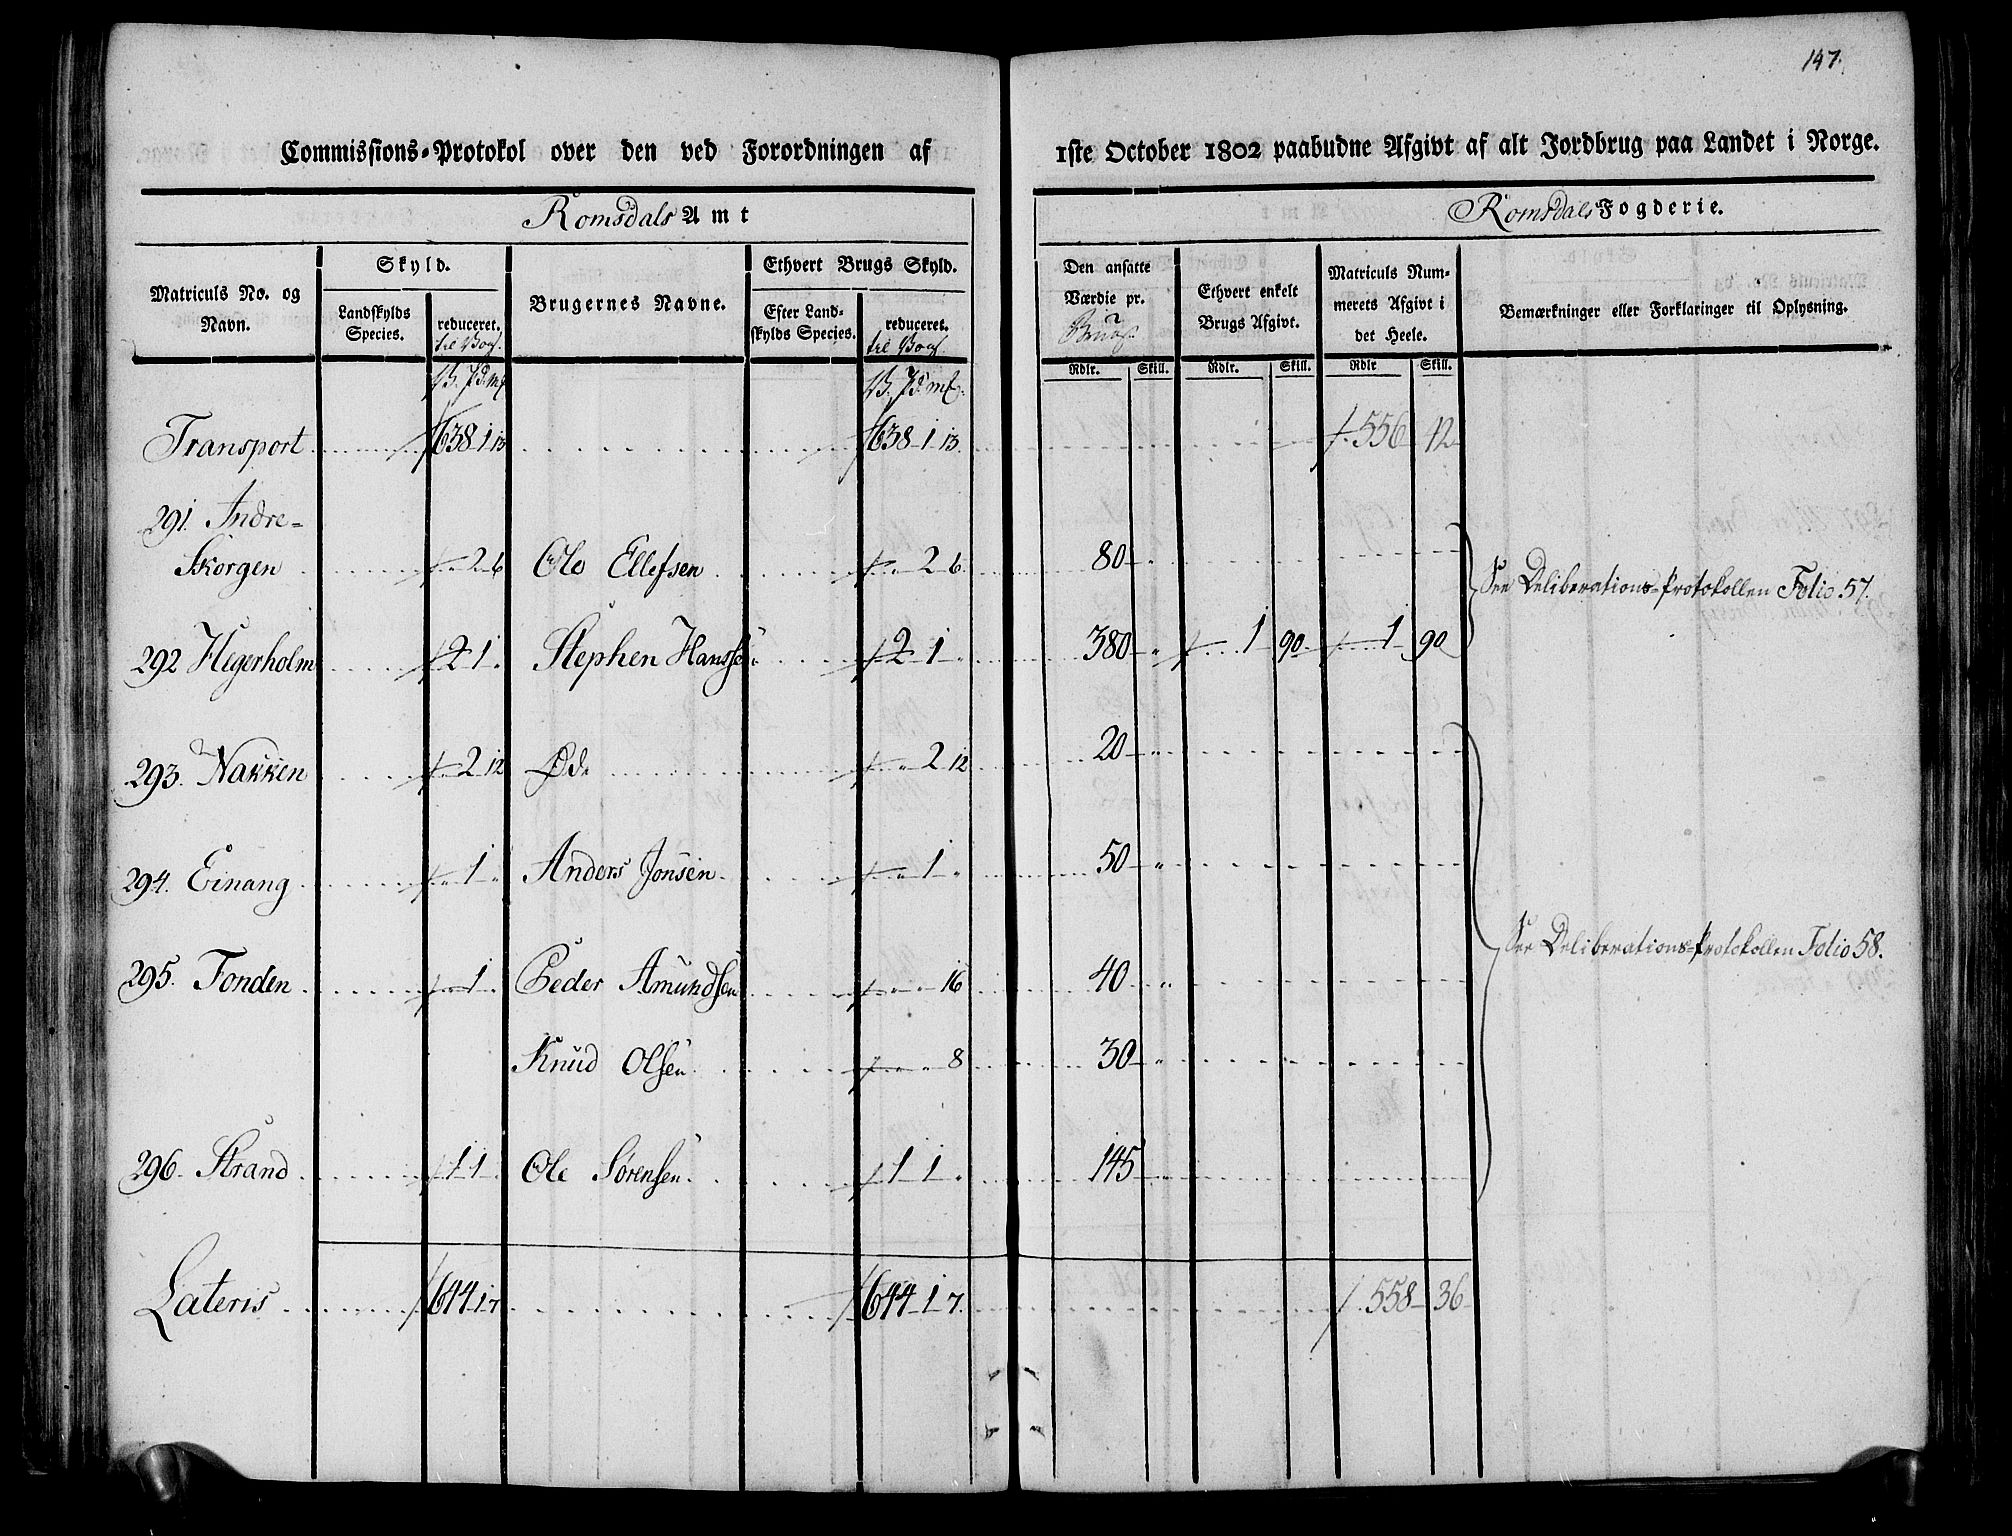 147.
Commissions-Protokol over den ved Forordningen af 1ste October 1802 paabudne Afgivt af alt Jordbrug paa Landet i Norge.
Romsdals Amt Romsdals Fogderie.
Matriculs No. og Navn. Skyld. Brugernes Navne. Ethvert Brugs Skyld. Den ansatte Værdie pr. Brug. Ethvert enkelt Brugs Afgivt. Matriculs Nummerets Afgivt i det Heele. Bemærkninger eller Forklaringer til Oplysning.
Landskylds Species. reduceret. til Vog. Efter Landskylds Species. reduceret. til Vog.
V. Pd. mk. V. Pd. mk. Rdlr. Skill. Rdlr. Skill. Rdlr Skill.
Transport 638 1 13 638 1 13. 556 42
291. Indre-
Skorgen 2 6 Ole Ellefsen 2 6. 80 See Deliberations-Protokollen Folio 57.
292 Hegerholm 2 1 Stephen Hanssen 2 1 380 1 90 1 90
293. Nakken 2 12 Øde 2 12 20
294. Einang 1 Anders Jonsen 1 50
See Deliberations-Protokollen Folio 58.
295. Tonden 1 Peder Amundsen 16 40
Knud Olsen 8 30
296. Strand 1 1 Ole Sørensen 1 1 145
Lateris 644 1 7 644 1 7. 558 36